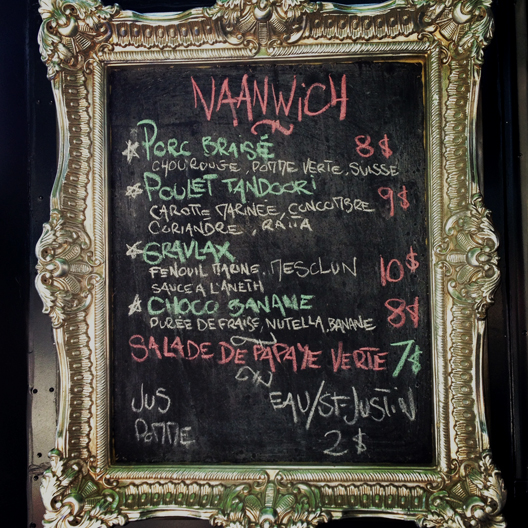 NAANWICH
PORC BRAISÉ 8$
CHOU ROUGE, POMME VERTE, SUISSE
POULET TANDOORI 9$
CAROTTE MARINÉE, CONCOMBRE
CORIANDRE, RAÏTA
GRAVLAX
FENOUIL MARINÉ, MESCLUN 10$
SAUCE A L'ANETH
CHOCO BANANE 8$
PURÉE DE FRAISE, NUTELLA, BANANE
SALADE DE PAPAYE VERTE 7$
JUS EAU/ST-JUSTIN
POMME 2$